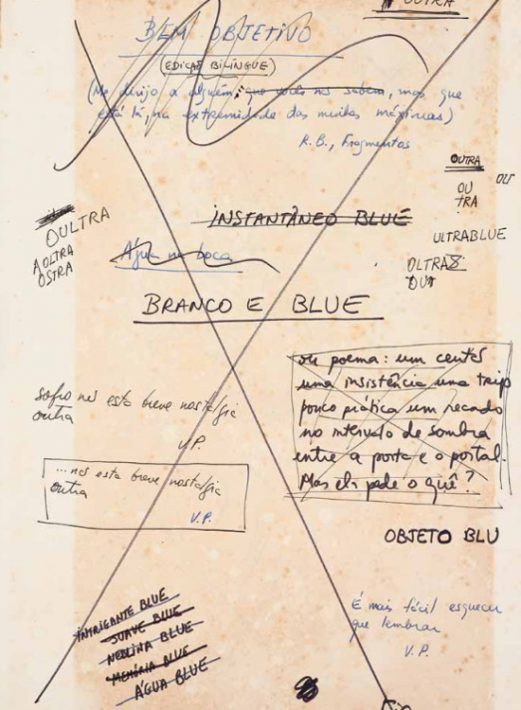 OUTRA
BEM OBJETIVO
(EDIÇÃO BILÍNGUE)
(Me dirijo a alguém, que vocês não sabem, mas que
está lá, na extremidade das minhas máximas)
R.B., Fragmentos
OUTRA
OU
TRA
OUT
INSTANTÂNEO BLUE
OULTRA
AOLTRA
OSTRA
ULTRABLUE
Água na boca
OLTRA
OUT
BRANCO E BLUE
ou poema: um
uma insistência uma
pouco prática um recado
no intervalo de sombra
entre a porta e o portal.
Mas ela pede o quê?
esta breve nostalgia
outra
V.P.
esta breve nostalgia
outra
V.P.
OBJETO BLU
INTRIGANTE BLUE
SUAVE BLUE
NEBLINA BLUE
MEMÓRIA BLUE
ÁGUA BLUE
É mais fácil esquecer
que lembrar
V.P.